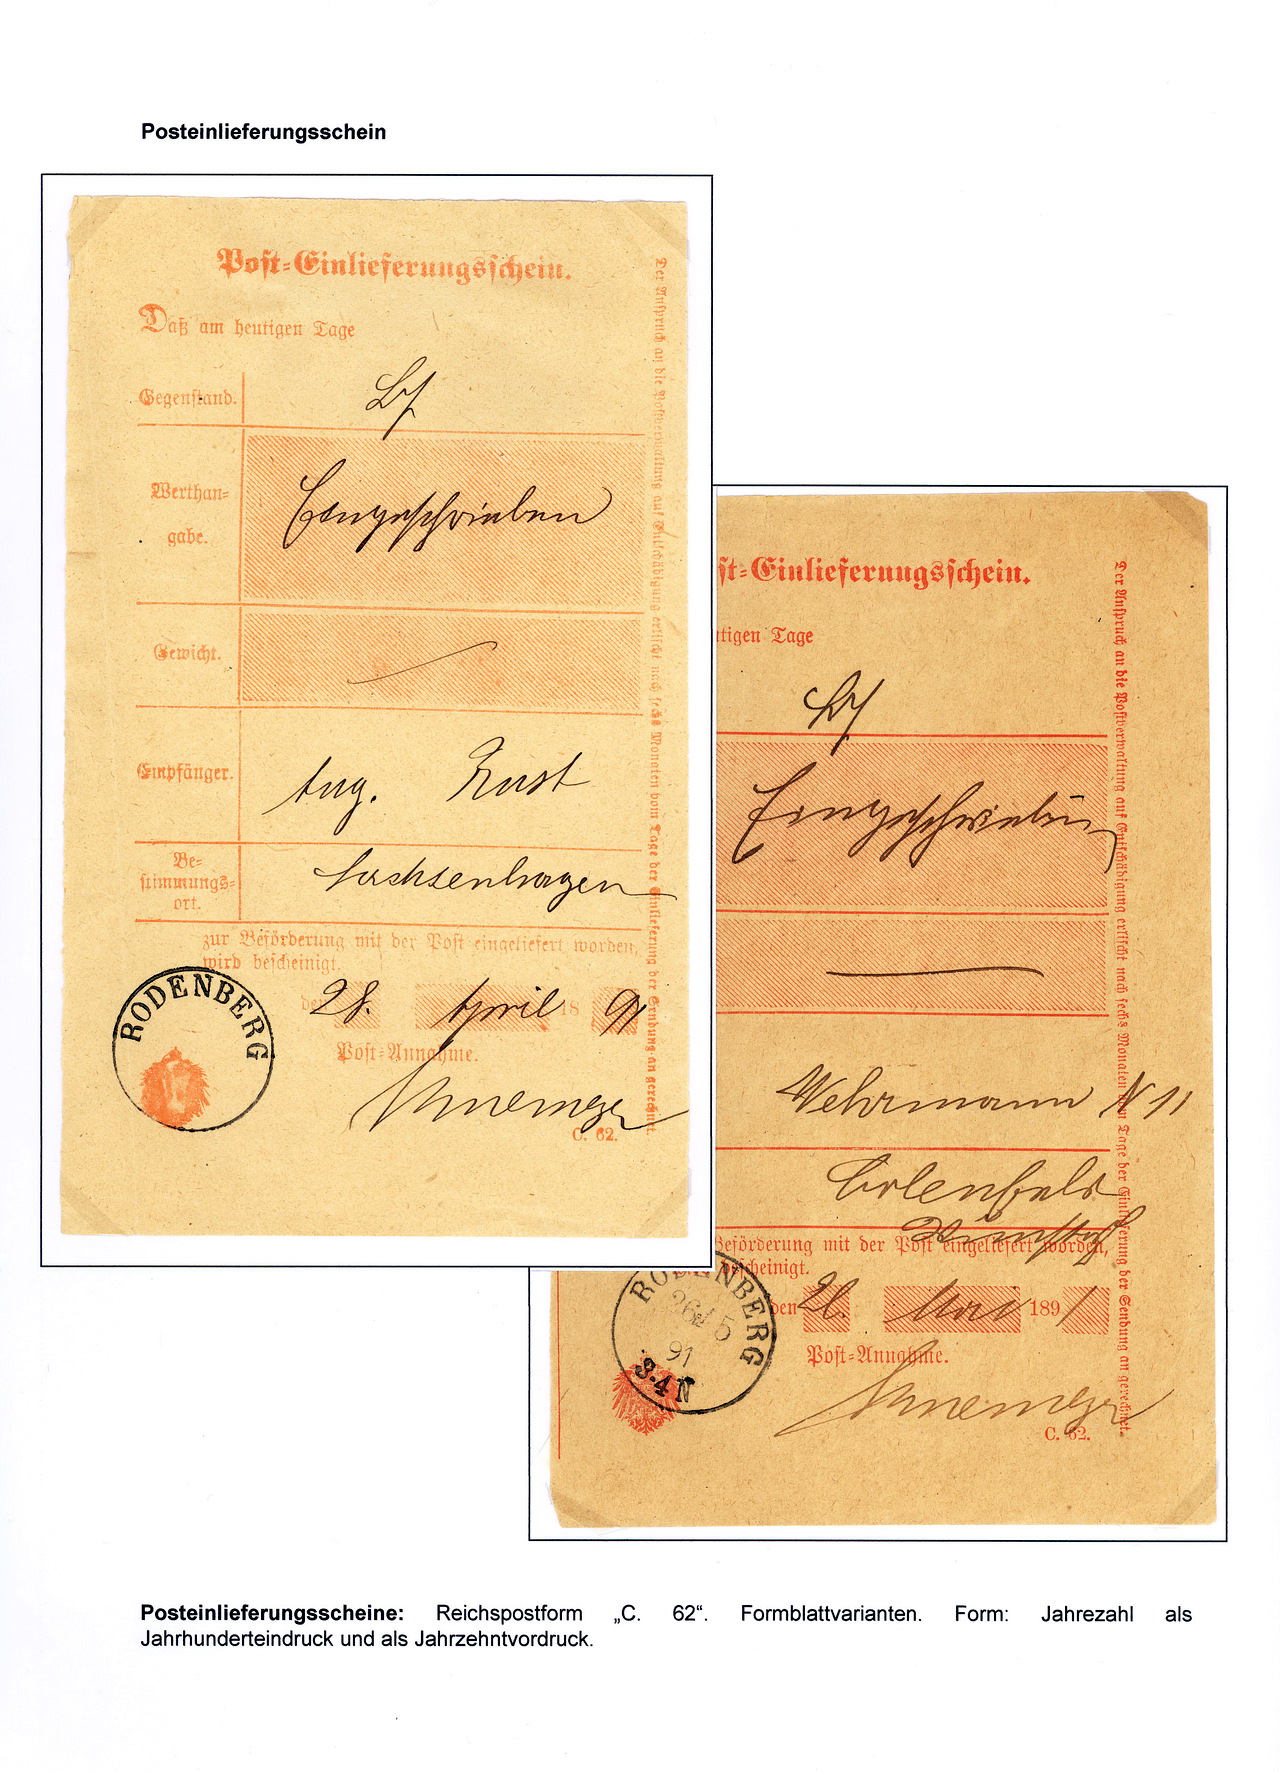 Posteinlieferungsschein
Post-Einlieferungsschein.
Daß am heutigen Tage
Gegenstand.
Bf
Werthan-
gabe.
Eingeschrieben
Gewicht.
Empfänger.
Aug. Rust
Be-
stimmungs-
ort.
Sachsenhagen
zur Beförderung mit der Post eingeliefert worden,
wird bescheinigt.
den 28. April 18 91
Post-Annahme.
C. 62.
RODENBERG
Der Anspruch an die Postverwaltung auf Entschädigung erlischt nach sechs Monaten vom Tage der Einlieferung der Sendung an gerechnet.
st-Einlieferungsschein.
tigen Tage
Bf
Eingeschrieben
Wehrmann N 11
Beförderung mit der Post eingeliefert worden,
bescheinigt.
den Mai 1891
Post-Annahme.
C. 62.
RODENBERG
26/5
91
3-4N
Der Anspruch an die Postverwaltung auf Entschädigung erlischt nach sechs Monaten vom Tage der Einlieferung der Sendung an gerechnet.
Posteinlieferungsscheine: Reichspostform „C. 62“. Formblattvarianten. Form: Jahrezahl als
Jahrhunderteindruck und als Jahrzehntvordruck.